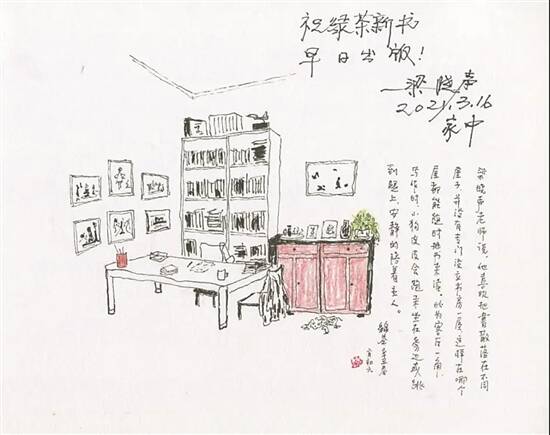 祝绿茶新书
早日出版！
—梁晓声
2021.3.16
家中
梁晓声老师说，他喜欢把書散落在不同
屋子，并没有专门设立书房一屋，这样在哪个
屋都能随时把书来读。此为客厅一角，
写作时，小狗皮皮会跑来坐在旁边或跳
到腿上，安静的陪着主人。
绿茶 辛丑春